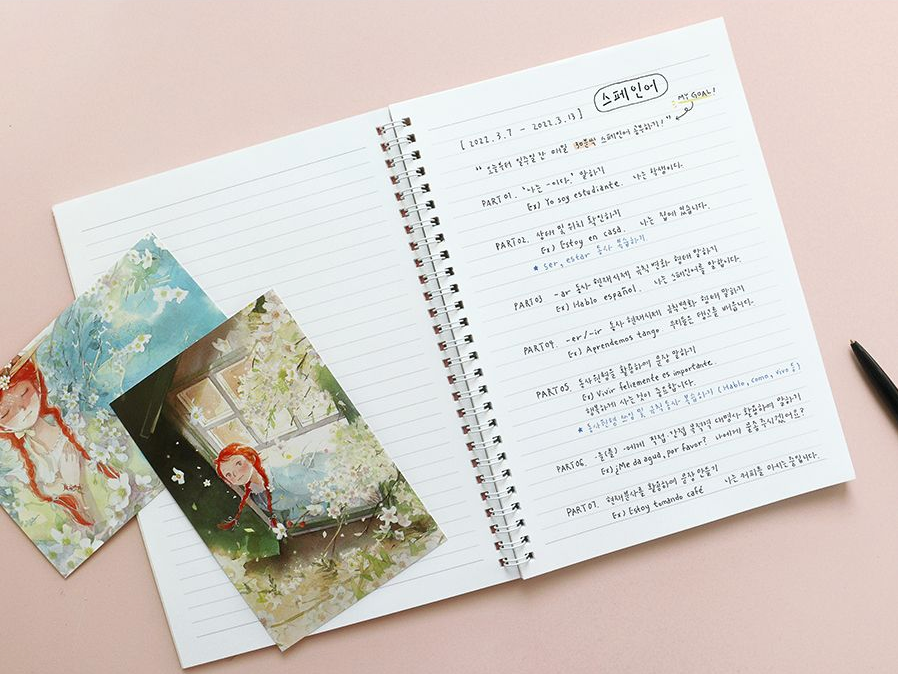 스페인어
MY GOAL!
[ 2022. 3. 7 - 2022. 3. 13 ]
"오늘부터 일주일 간 매일 30분씩 스페인어 공부하기!"
PART 01. '나는 -이다.' 말하기
Ex) Yo soy estudiante. 나는 학생이다.
PART 02. 상태 및 위치 확인하기
Ex) Estoy en casa. 나는 집에 있습니다.
* ser, estar 동사 복습하기
PART 03 -ar 동사 현재시제 규칙 변화 형태 말하기
Ex) Hablo español. 나는 스페인어를 말합니다.
PART 04. -er/-ir 동사 현재시제 규칙변화 형태 말하기
Ex) Aprendemos tango 우리들은 탱고를 배웁니다.
PART 05. 동사원형을 활용하여 문장 말하기
Ex) Vivir felizmente es importante.
행복하게 사는 것이 중요합니다.
* 동사원형 쓰임 및 규칙동사 복습하기 (Hablo, como, vivo 등)
PART 06. -을(를) -에게 직접·간접 목적격 대명사 활용하여 말하기
Ex) ¿Me da agua, por favor? 나에게 물을 주시겠어요?
PART 07. 현재분사를 활용하여 문장 만들기
Ex) Estoy tomando café 나는 커피를 마시는 중입니다.